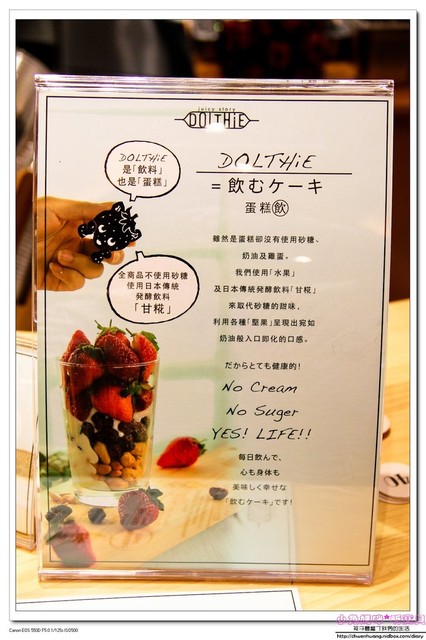 juicy story
DOLTHiE
DOLTHiE
是「飲料」
也是「蛋糕」
全商品不使用砂糖
使用日本傳統
発酵飲料
「甘糀」
DOLTHiE
= 飲むケーキ
蛋糕飲
雖然是蛋糕卻沒有使用砂糖、
奶油及雞蛋。
我們使用「水果」
及日本傳統発酵飲料「甘糀」
來取代砂糖的甜味,
利用各種「堅果」呈現出宛如
奶油般入口即化的口感。
だからとても健康的!
No Cream
No Suger
YES! LIFE!!
毎日飲んで、
心も身体も
美味しく幸せな
「飲むケーキ」です!
Canon EOS 550D F5.0 1/125s ISO500
http://chwenhuang.nidbox.com/diary